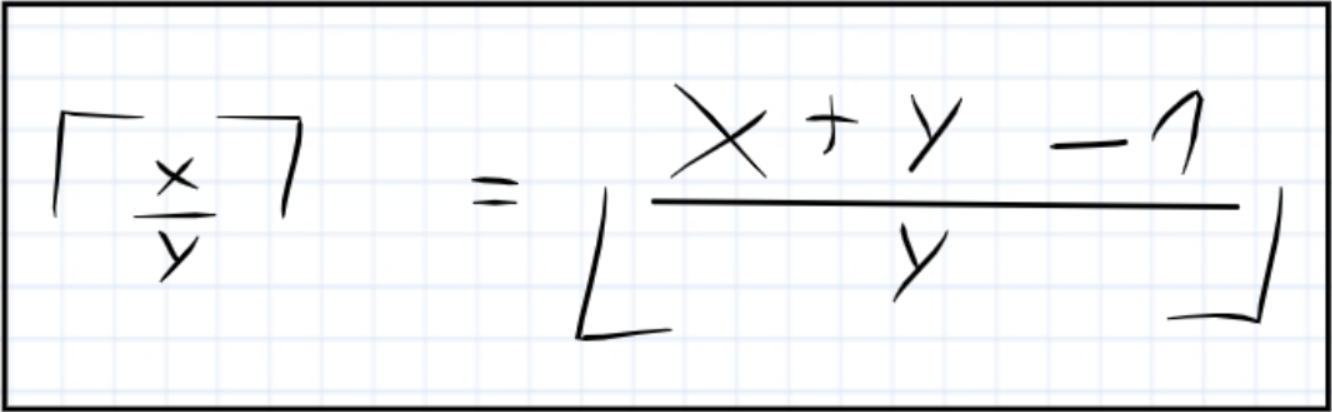 ⌈x/y⌉ = ⌊(x + y − 1)/y⌋